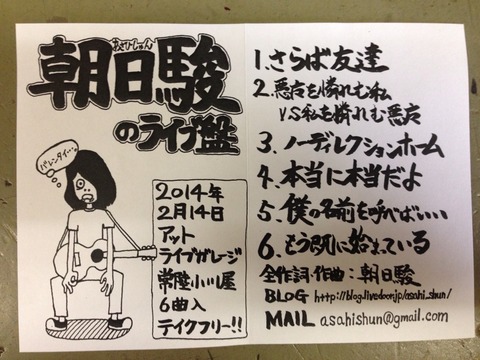 あさひしゅん
朝日駿
のライブ盤
バレンタイン…
2014年
2月14日
アット
ライブガレージ
常陸小川屋
6曲入
テイクフリー!!
1.さらば友達
2.悪友を憐れむ私
VS私を憐れむ悪友
3.ノーディレクションホーム
4.本当に本当だよ
5.僕の名前を呼べばいい
6.もう既に始まっている
全作詞・作曲:朝日駿
BLOG http://blog.livedoor.jp/asahi_shun/
MAIL asahishun@gmail.com